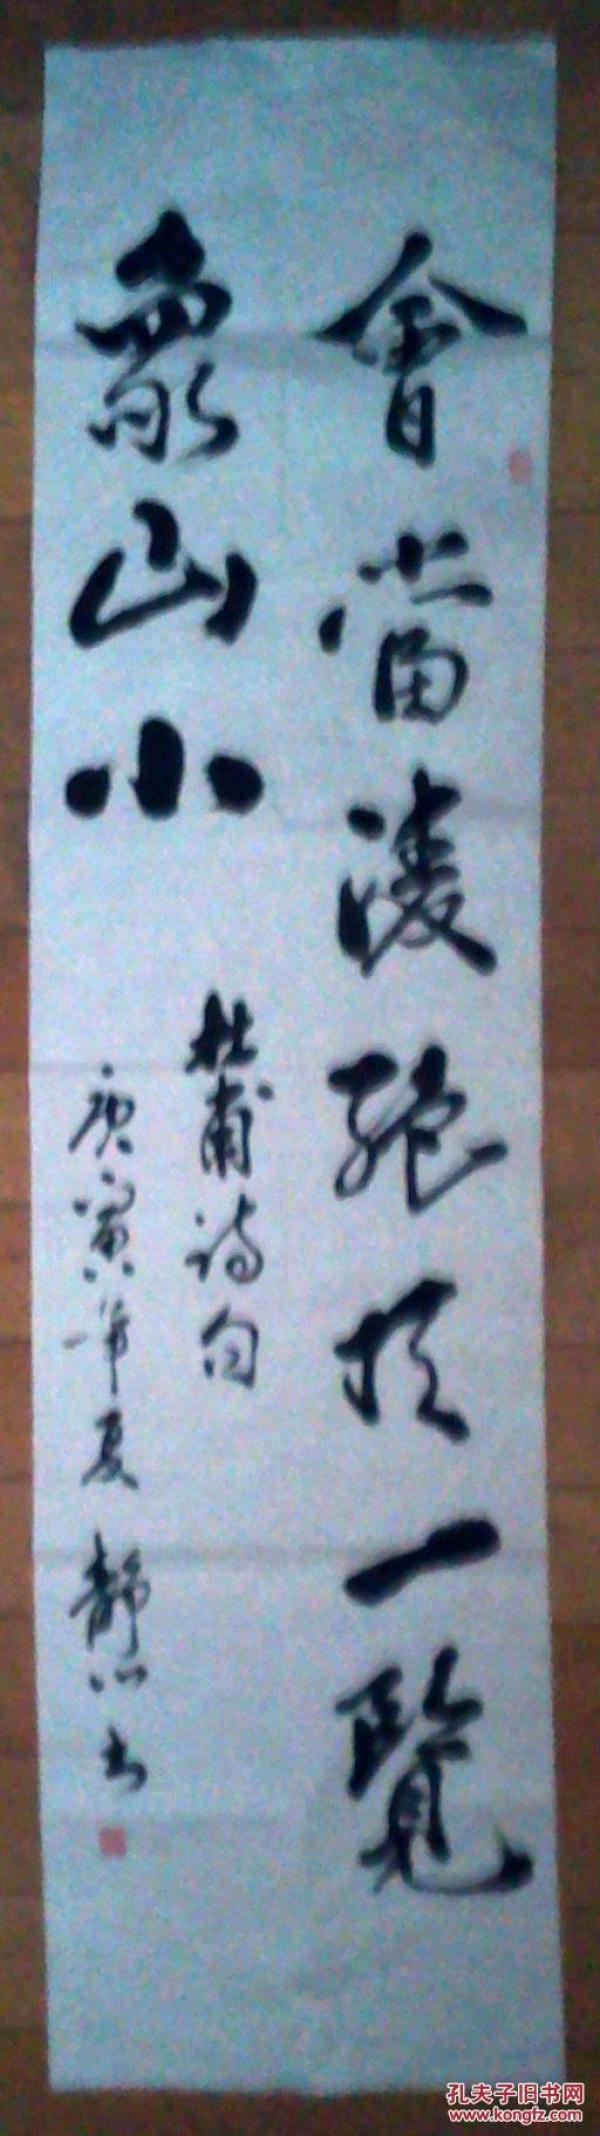 會當凌絕頂一覽
衆山小
杜甫詩句
庚寅年夏靜心書
孔夫子旧书网
www.kongfz.com